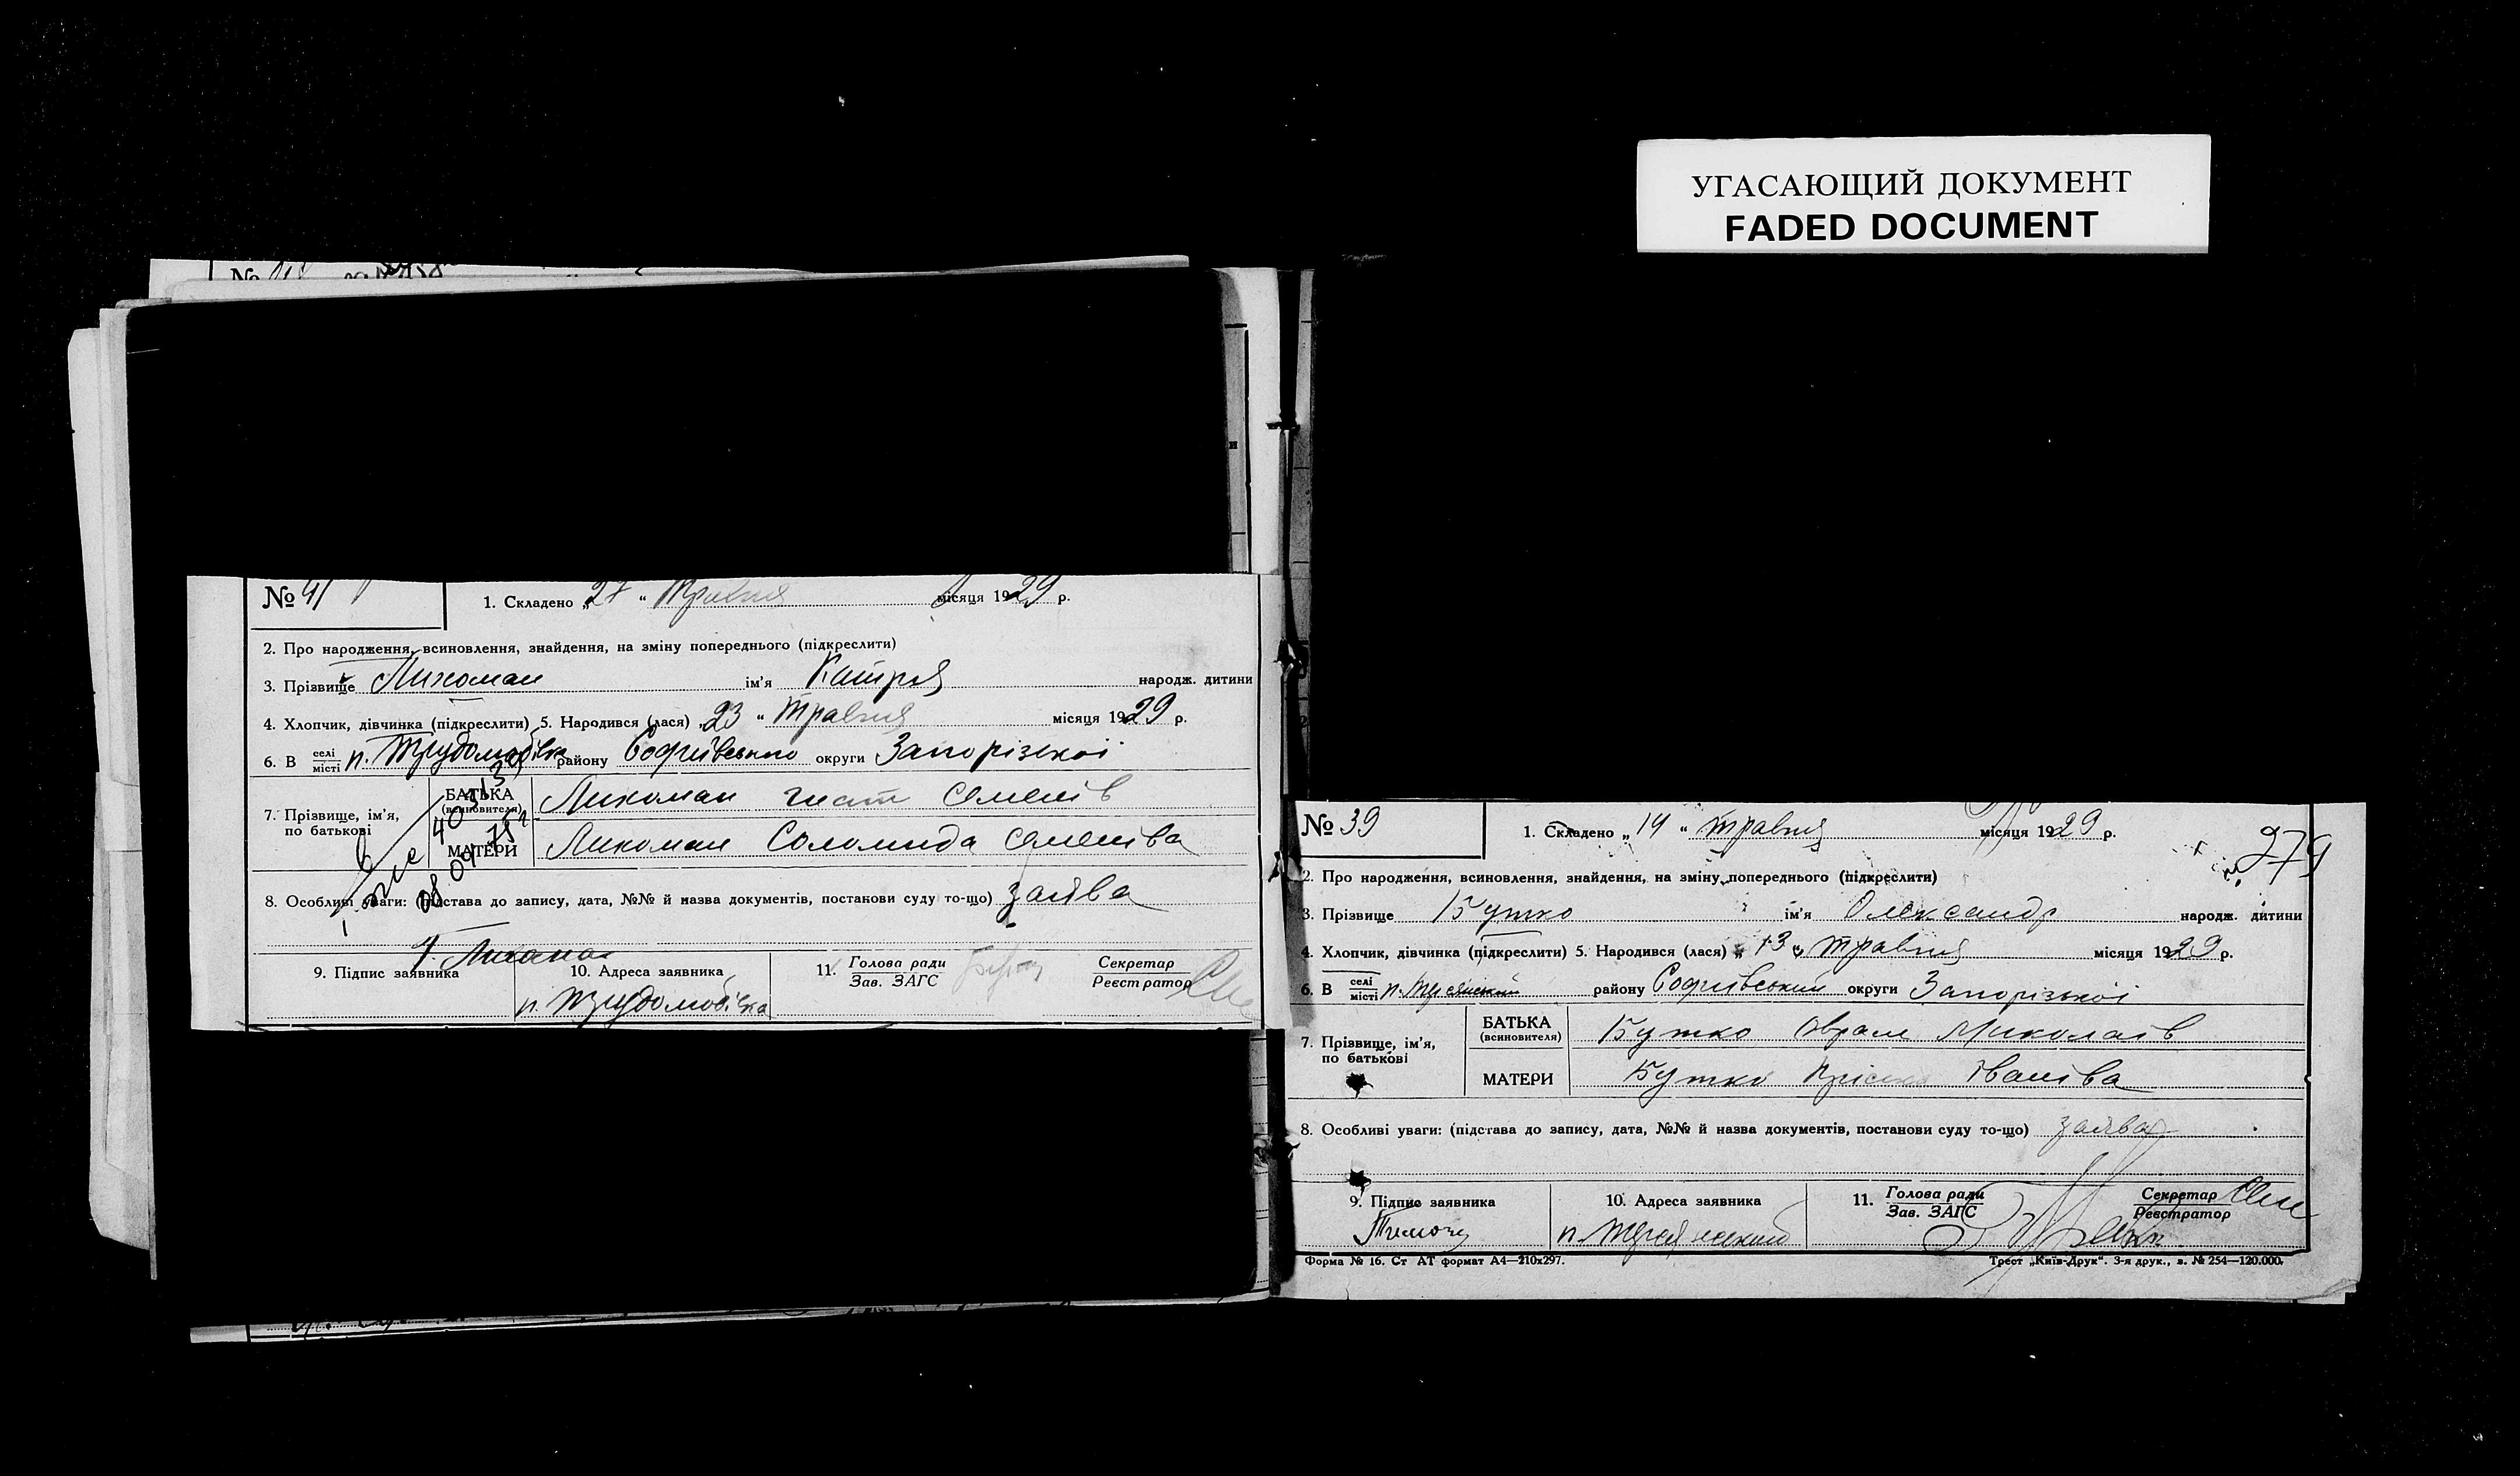 УГАСАЮЩИЙ ДОКУМЕНТ
FADED DOCUMENT
№ 41
1. Складено „27“ Травня місяця 1929 р.
2. Про народження, всиновлення, знайдення, на зміну попереднього (підкреслити)
3. Прізвище Лихоман ім'я Катря народж. дитини
4. Хлопчик, дівчинка (підкреслити) 5. Народився (лася) „23“ травня місяця 1929 р.
6. В селі місті п. Трудомобівка району Софиївського округи Запорізької
7. Прізвище, ім'я, по батькові
БАТЬКА (всиновителя) Лихоман Гнат Семенів
МАТЕРИ Лихоман Соломида Семенівa
8. Особливі уваги: (підстава до запису, дата, №№ й назва документів, постанови суду то-що) заява
9. Підпис заявника
10. Адреса заявника
п. Трудомобівка
11. Голова ради Зав. ЗАГС
Секретар Реєстратор
№ 39
1. Складено „14“ травня місяця 1929 р.
279
2. Про народження, всиновлення, знайдення, на зміну попереднього (підкреслити)
3. Прізвище Бутко ім'я Олександр народж. дитини
4. Хлопчик, дівчинка (підкреслити) 5. Народився (лася) „13“ травня місяця 1929 р.
6. В селі місті п. району Софиївський округи Запорізької
7. Прізвище, ім'я, по батькові
БАТЬКА (всиновителя) Бутко Оврам Миколаїв
МАТЕРИ Бутко Пріська Іваніва
8. Особливі уваги: (підстава до запису, дата, №№ й назва документів, постанови суду то-що) заява
9. Підпис заявника
10. Адреса заявника
п.
11. Голова ради Зав. ЗАГС
Секретар Реєстратор
Форма № 16. Ст АТ формат А4—210х297.
Трест „Київ-Друк“. 3-я друк., в. № 254—120.000.